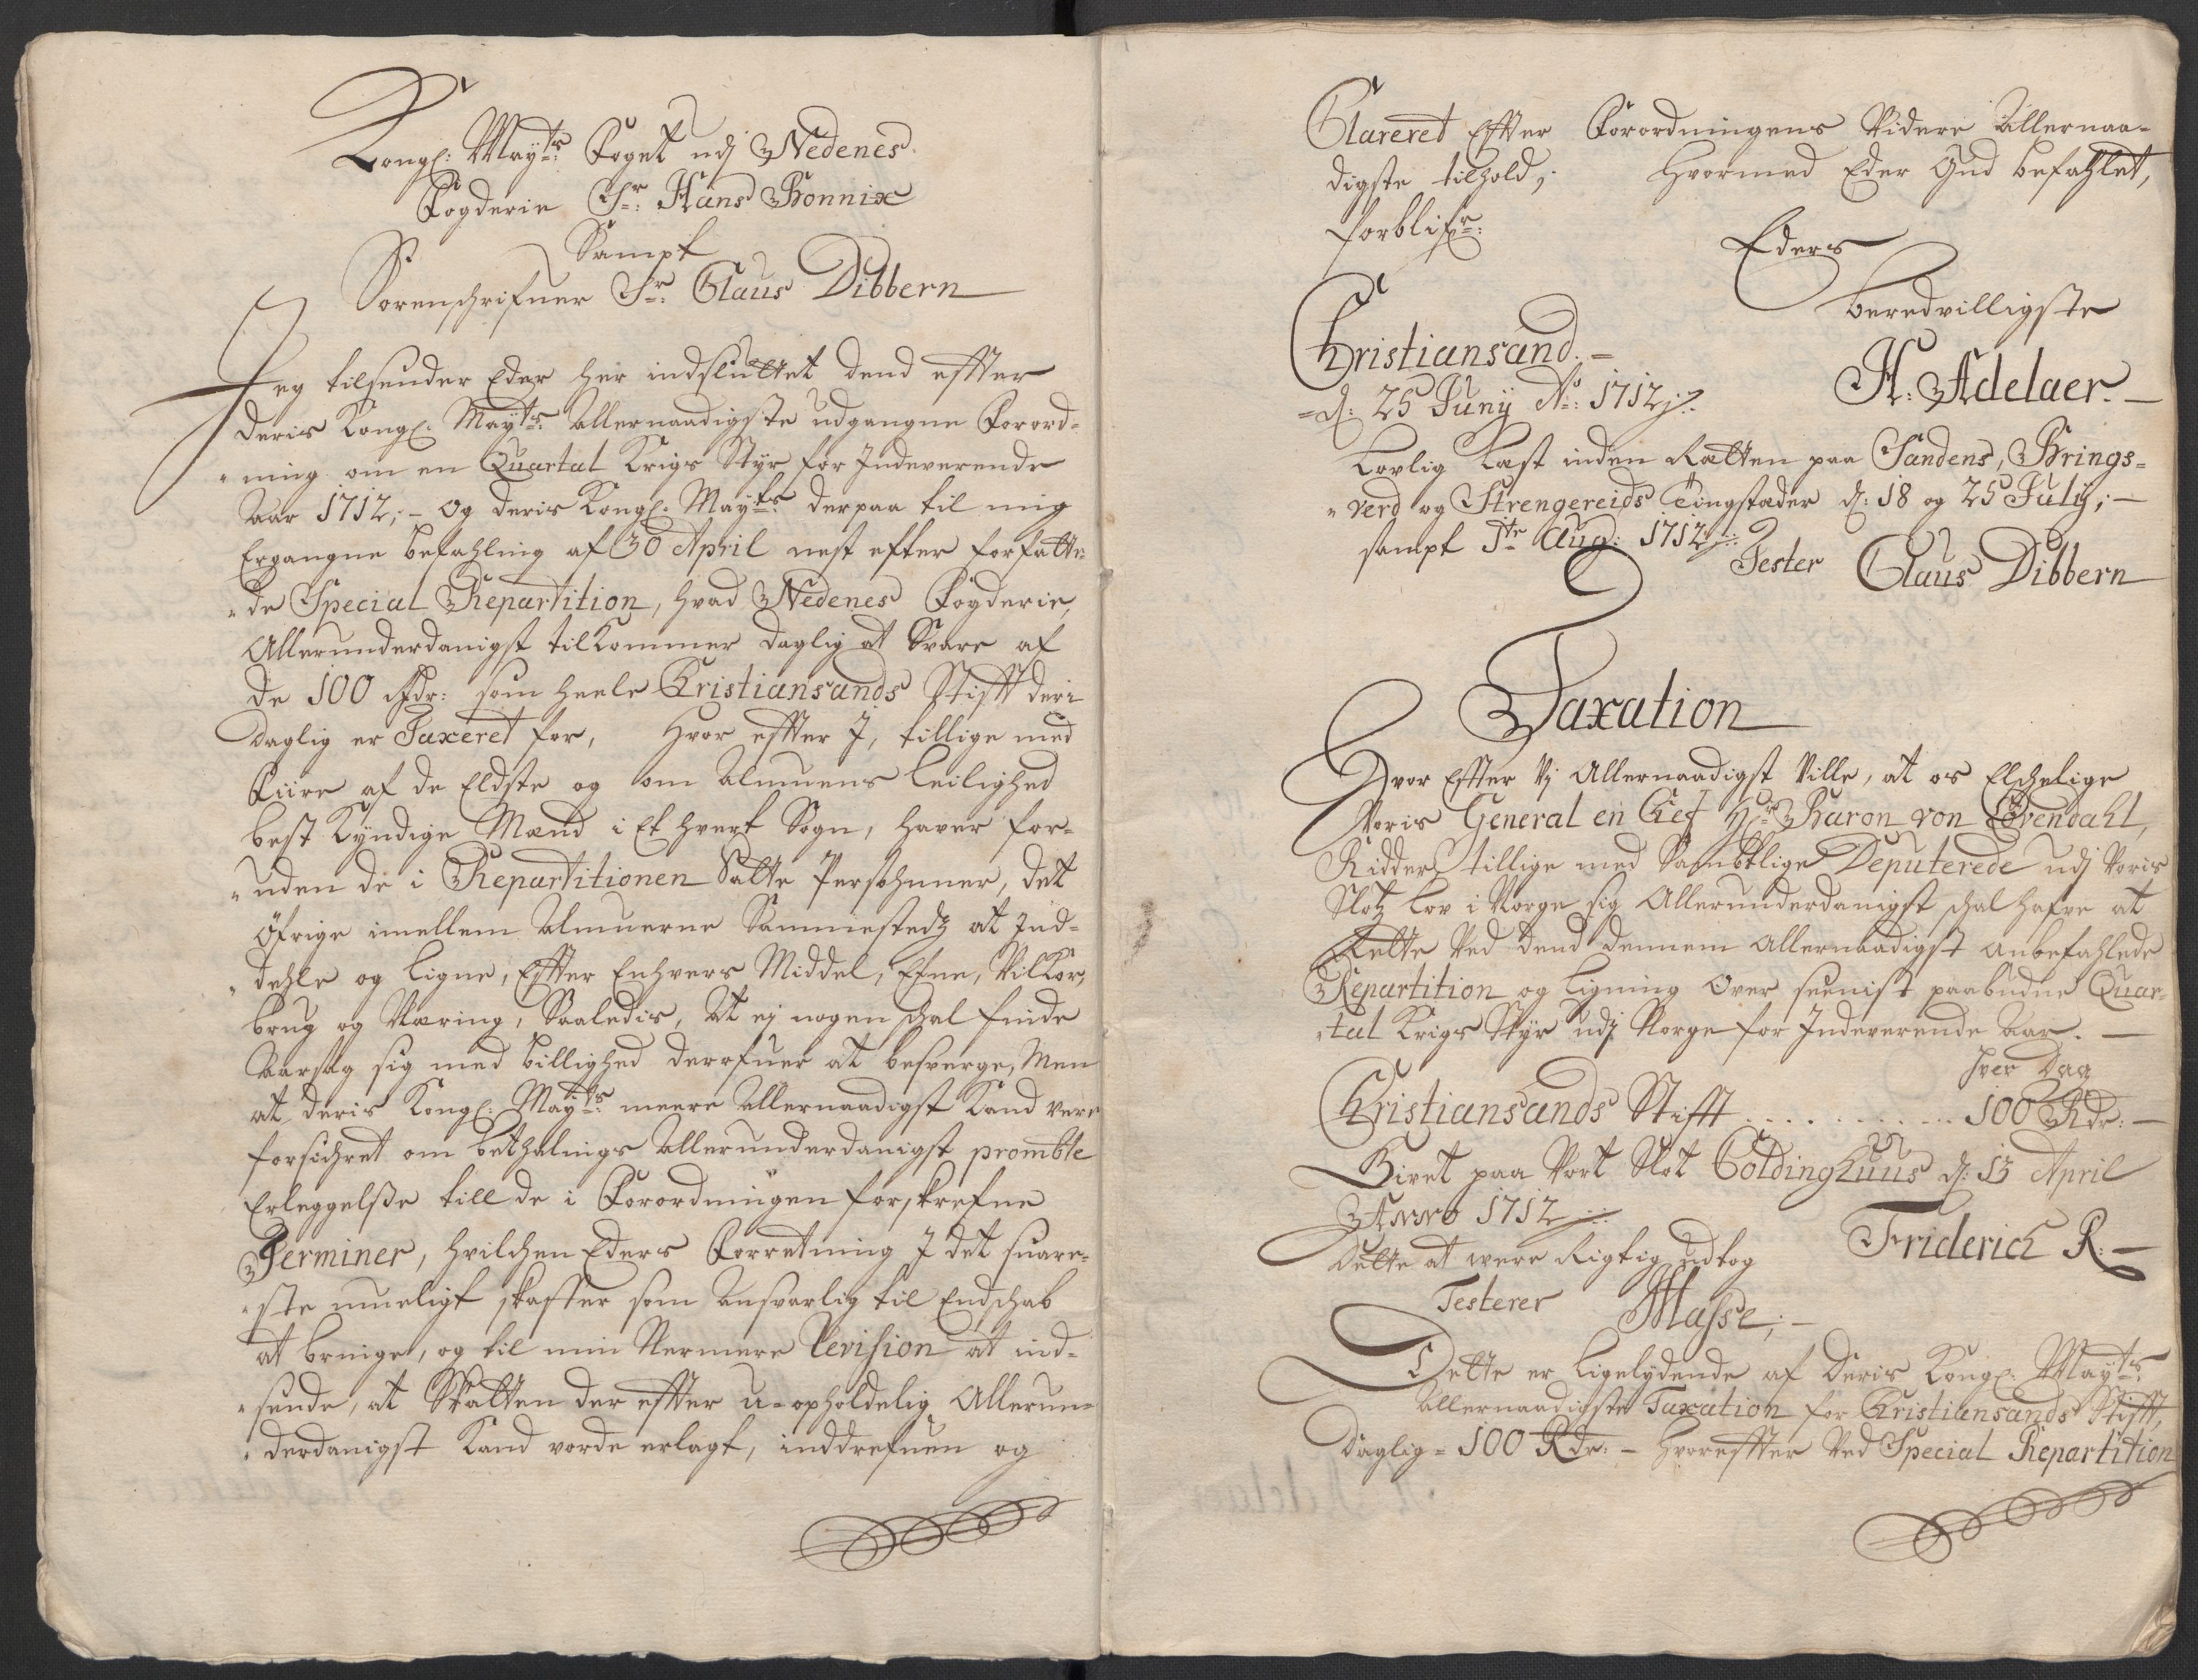 Kongl: Mayts: Foget udj Nedenes
Fogderie Sr: Hans Bonnix
Sampt
Sorenschrifuer Sr: Claus Dibbern
Jeg tilsender Eder her indsluttet dend effter
deris Kongl: Mayts: Allernaadigste udgangne Forord-
ning om en Quartal Krigs Styr for Indeverende
Aar 1712;- Og deris Kongl: Mayts: derpaa til mig
Ergangne befahling af 30 April nest efter forfatte-
de Special Repartition, hvad Nedenes Fogderie,
Allerunderdanigst tilkommer daglig at Svare af
de 100 Rdr: som heele Christiansands Stifft deri
daglig er Taxeret for, Hvor effter I, tillige med
Fiire af de Eldste og om Almuens leilighed
best kyndige Mænd i Et hvert Sogn, haver for-
uden de i Repartitionen Satte Persohnner, det
Øfrige imellem Almuerne Sammestedz at Ind-
dehle og Ligne, Effter Enhvers Middel, Efne, Vilkor,
brug og Næring, Saaledis, At ej nogen schal finde
Aarsag sig med billighed derofuer at besverge, Men
at deris Kongl: Mayts: meere Allernaadigst Kand vere
forsichret om bethalings Allerunderdanigst prombte
Erleggelsse till de i Forordningen forskrefne
Terminer, hvilchen Eders Forretning I det snare-
ste mueligt skaffer som Ansvarlig til Endschab
at bringe, og til min Nermere Revision at ind-
sende, at Skatten der effter u-opholdelig Allerun-
derdanigst Kand vorde erlagt, inddrefuen og
Clareret Effter Forordningens Videre Allernaa-
digste tilhold; Hvormed Eder Gud befahlet,
forblifr:
Eders
beredvilligste
Christiansand.-
d: 25 Junij Ao: 1712
H: Adelaer.-
Lovlig Læst inden Retten paa Sandens, Brings-
verd og Strengereids Tingstæder d: 18 og 25 Julij;-
sampt 1te Aug: 1712
Tester Claus Dibbern
Taxation
Hvor Effter Vj Allernaadigst Ville, at os Elschelige
Voris General en Chef Hr: Baron von Løvendahl,
Ridder, tillige med Sambtlige Deputerede udj Voris
Slotz Lov i Norge sig Allerunderdanigst schal hafve at
Rette Ved dend dennem Allernaadigst anbefahlede
Repartition og Ligning Over seenist paabudne Quar-
tal Krigs Styr udj Norge for Indeverende Aar.-
hver Dag
Christiansands Stifft . . . . . . . . . 100 Rdr:-
Givet paa Vort Slot Coldinghuus d: 13 April
Anno 1712
Friderich R:-
Dette at were Rigtig udtog
Testerer Masse;-
Dette er Ligelydende af Deris Kongl: Mayts:
Allernaadigste Taxation for Christiansands Stifft,
daglig - 100 Rdr:- Hvoreffter Ved Special Repartition